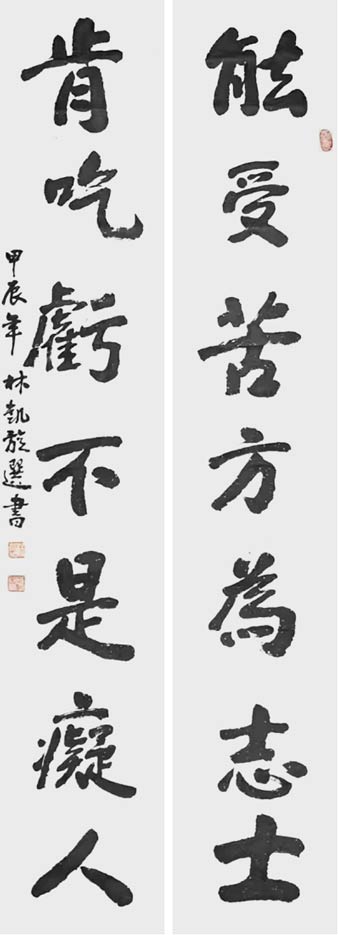 能受苦方為志士
肯吃虧不是癡人
甲辰年林凱旋選書